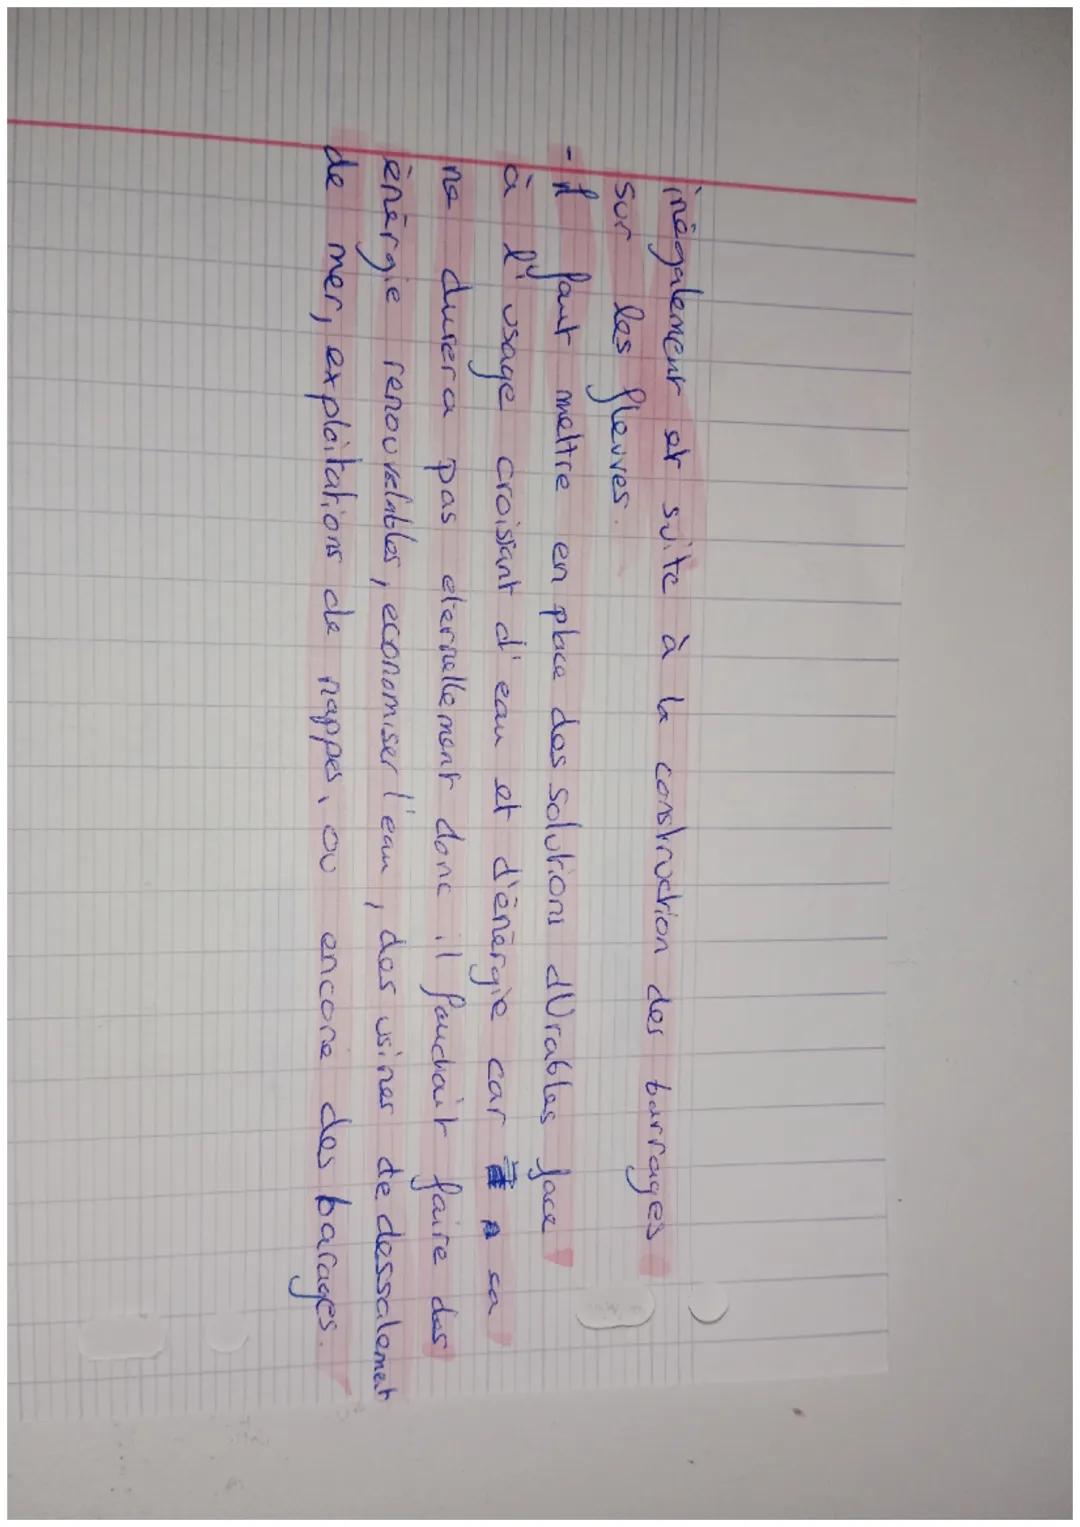 inégalement et suite à la construction des barrages
sur les fleuvres.
- Il faut mettre en place des solutions dUrables face
à l'usage croissant d'eau et d'énérgie car sa
ne durera pas eternellement donc il faudrait faire des
énérgie renouvelables, economiser l'eau, des usines de dessalement
de mer, exploitations de nappes, ou encore des barages.